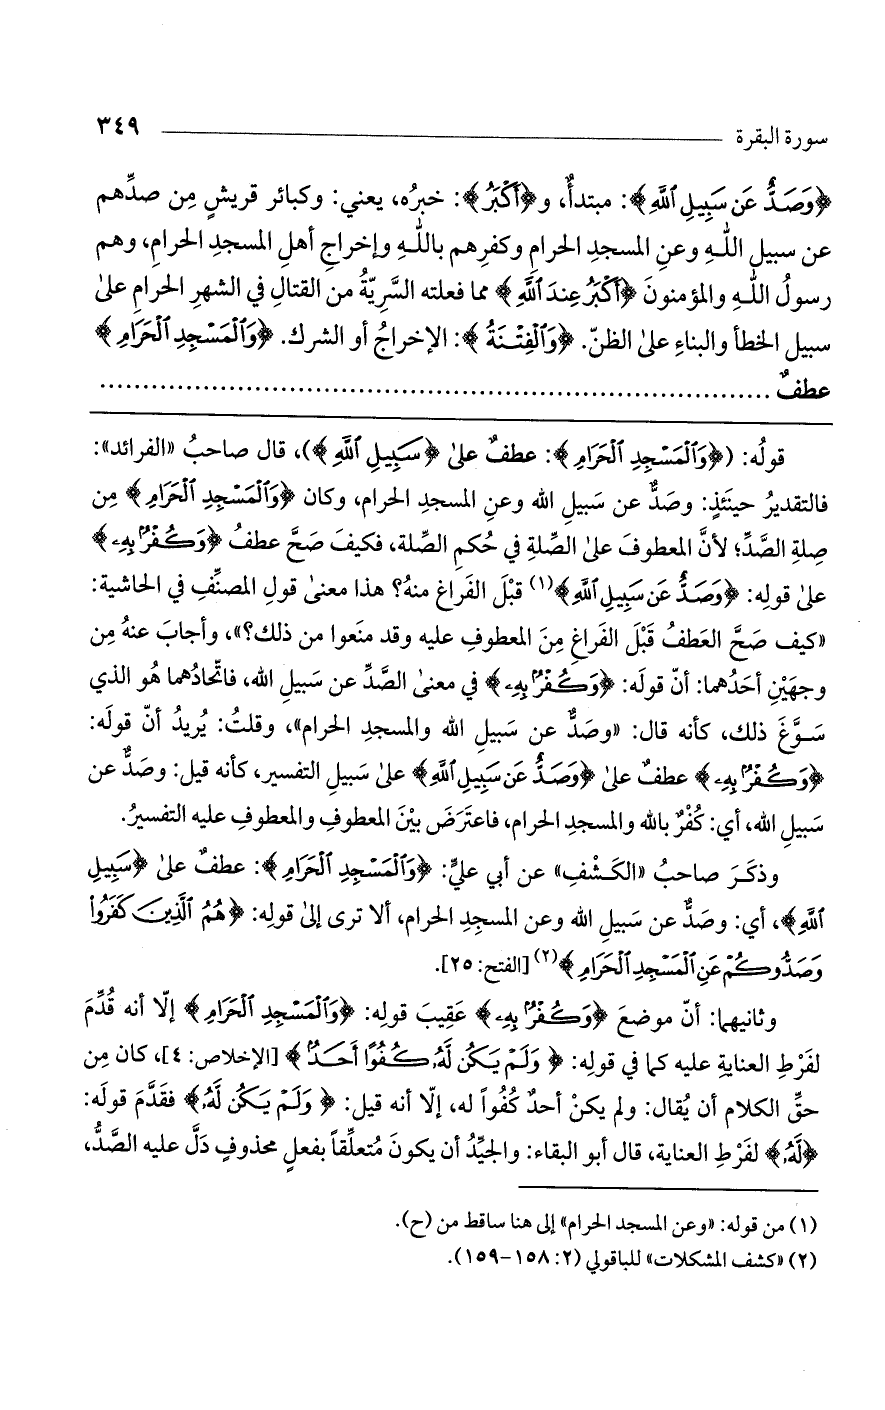 سورة البقرة ٣٤٩
﴿وَصَدٌّ عَن سَبِيلِ ٱللَّهِ﴾: مبتدأٌ، و﴿أَكْبَرُ﴾: خبرُه، يعني: وكبائر قريشٍ مِن صدِّهم
عن سبيل اللهِ وعنِ المسجدِ الحرامِ وكفرِهم باللهِ وإخراجِ أهلِ المسجدِ الحرامِ، وهم
رسولُ اللهِ والمؤمنونَ ﴿أَكْبَرُ عِندَ ٱللَّهِ﴾ مما فعلته السَّرِيّةُ من القتالِ في الشهرِ الحرامِ علىٰ
سبيل الخطأ والبناءِ علىٰ الظنّ. ﴿وَٱلْفِتْنَةُ﴾: الإخراجُ أو الشرك. ﴿وَٱلْمَسْجِدِ ٱلْحَرَامِ﴾
عطفٌ ................................................................................
قولُه: (﴿وَٱلْمَسْجِدِ ٱلْحَرَامِ﴾: عطفٌ علىٰ ﴿سَبِيلِ ٱللَّهِ﴾)، قال صاحبُ «الفرائد»:
فالتقديرُ حينَئذٍ: وصَدٌّ عن سَبيلِ الله وعنِ المسجدِ الحرام، وكان ﴿وَٱلْمَسْجِدِ ٱلْحَرَامِ﴾ مِن
صِلةِ الصَّدِّ؛ لأنَّ المعطوفَ علىٰ الصِّلةِ في حُكمِ الصِّلة، فكيفَ صَحَّ عطفُ ﴿وَكُفْرٌۢ بِهِۦ﴾
علىٰ قولِه: ﴿وَصَدٌّ عَن سَبِيلِ ٱللَّهِ﴾(١) قبْلَ الفَراغِ منهُ؟ هذا معنىٰ قولِ المصنِّفِ في الحاشية:
«كيف صَحَّ العَطفُ قَبْلَ الفَراغِ مِنَ المعطوفِ عليه وقد منَعوا من ذلك؟»، وأجابَ عنهُ مِن
وجهَيْنِ أحَدُهما: أنّ قولَه: ﴿وَكُفْرٌۢ بِهِۦ﴾ في معنىٰ الصَّدِّ عن سَبيلِ الله، فاتّحادُهما هُو الذي
سَوَّغَ ذلك، كأنه قال: «وصَدٌّ عن سَبيلِ الله والمسجدِ الحرام»، وقلتُ: يُريدُ أنّ قولَه:
﴿وَكُفْرٌۢ بِهِۦ﴾ عطفٌ علىٰ ﴿وَصَدٌّ عَن سَبِيلِ ٱللَّهِ﴾ علىٰ سَبيلِ التفسير، كأنه قيل: وصَدٌّ عن
سَبيلِ الله، أي: كُفْرٌ بالله والمسجدِ الحرام، فاعتَرَضَ بيْنَ المعطوفِ والمعطوفِ عليه التفسيرُ.
وذكَرَ صاحبُ «الكَشْفِ» عن أبي عليٍّ: ﴿وَٱلْمَسْجِدِ ٱلْحَرَامِ﴾: عطفٌ علىٰ ﴿سَبِيلِ
ٱللَّهِ﴾، أي: وصَدٌّ عن سَبيلِ الله وعنِ المسجِدِ الحرام، ألا ترى إلىٰ قولِه: ﴿هُمُ ٱلَّذِينَ كَفَرُوا۟
وَصَدُّوكُمْ عَنِ ٱلْمَسْجِدِ ٱلْحَرَامِ﴾(٢) [الفتح: ٢٥].
وثانيهما: أنّ موضعَ ﴿وَكُفْرٌۢ بِهِۦ﴾ عَقِيبَ قولِه: ﴿وَٱلْمَسْجِدِ ٱلْحَرَامِ﴾ إلّا أنه قُدِّمَ
لفَرْطِ العنايةِ عليه كما في قولِه: ﴿وَلَمْ يَكُن لَّهُۥ كُفُوًا أَحَدٌۢ﴾ [الإخلاص: ٤]، كان مِن
حقِّ الكلام أن يُقال: ولم يكنْ أحدٌ كُفُواً له، إلّا أنه قيل: ﴿وَلَمْ يَكُن لَّهُۥ﴾ فقَدَّمَ قولَه:
﴿لَّهُۥ﴾ لفَرْطِ العناية، قال أبو البقاء: والجيِّدُ أن يكونَ مُتعلِّقاً بفعلٍ محذوفٍ دَلَّ عليه الصَّدُّ،
(١) من قوله: «وعن المسجد الحرام» إلى هنا ساقط من (ح).
(٢) «كشف المشكلات» للباقولي (٢: ١٥٨-١٥٩).